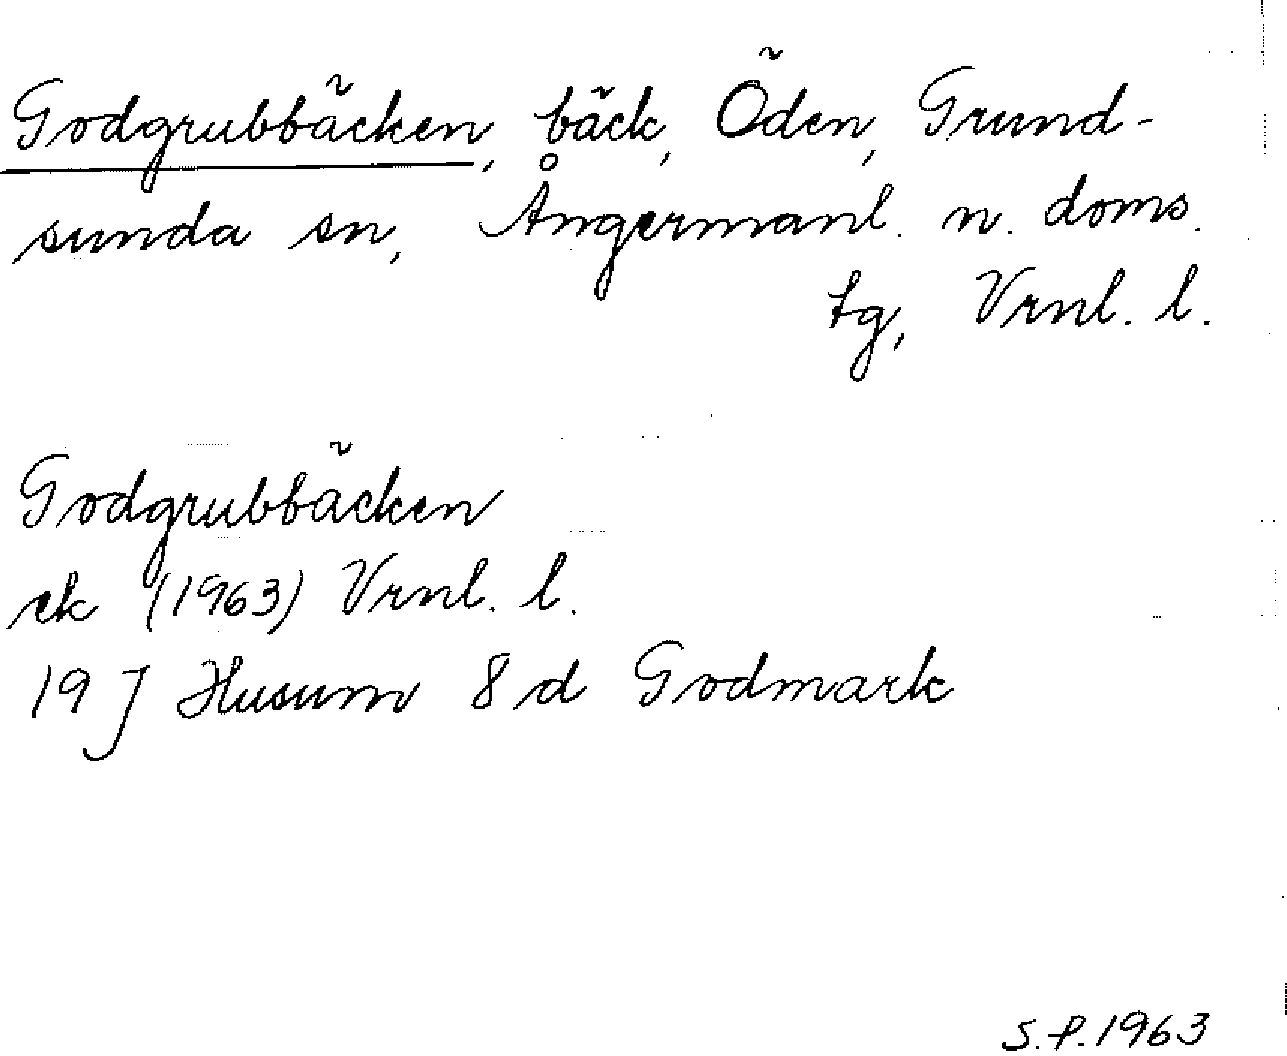 Godgrubbäcken, bäck, Öden, Grund-
sunda sn, Ångermanl. n. doms.
tg, Vrnl. l.
Godgrubbäcken
ek (1963) Vrnl. l.
19 J Husum 8 d Godmark
S.P. 1963